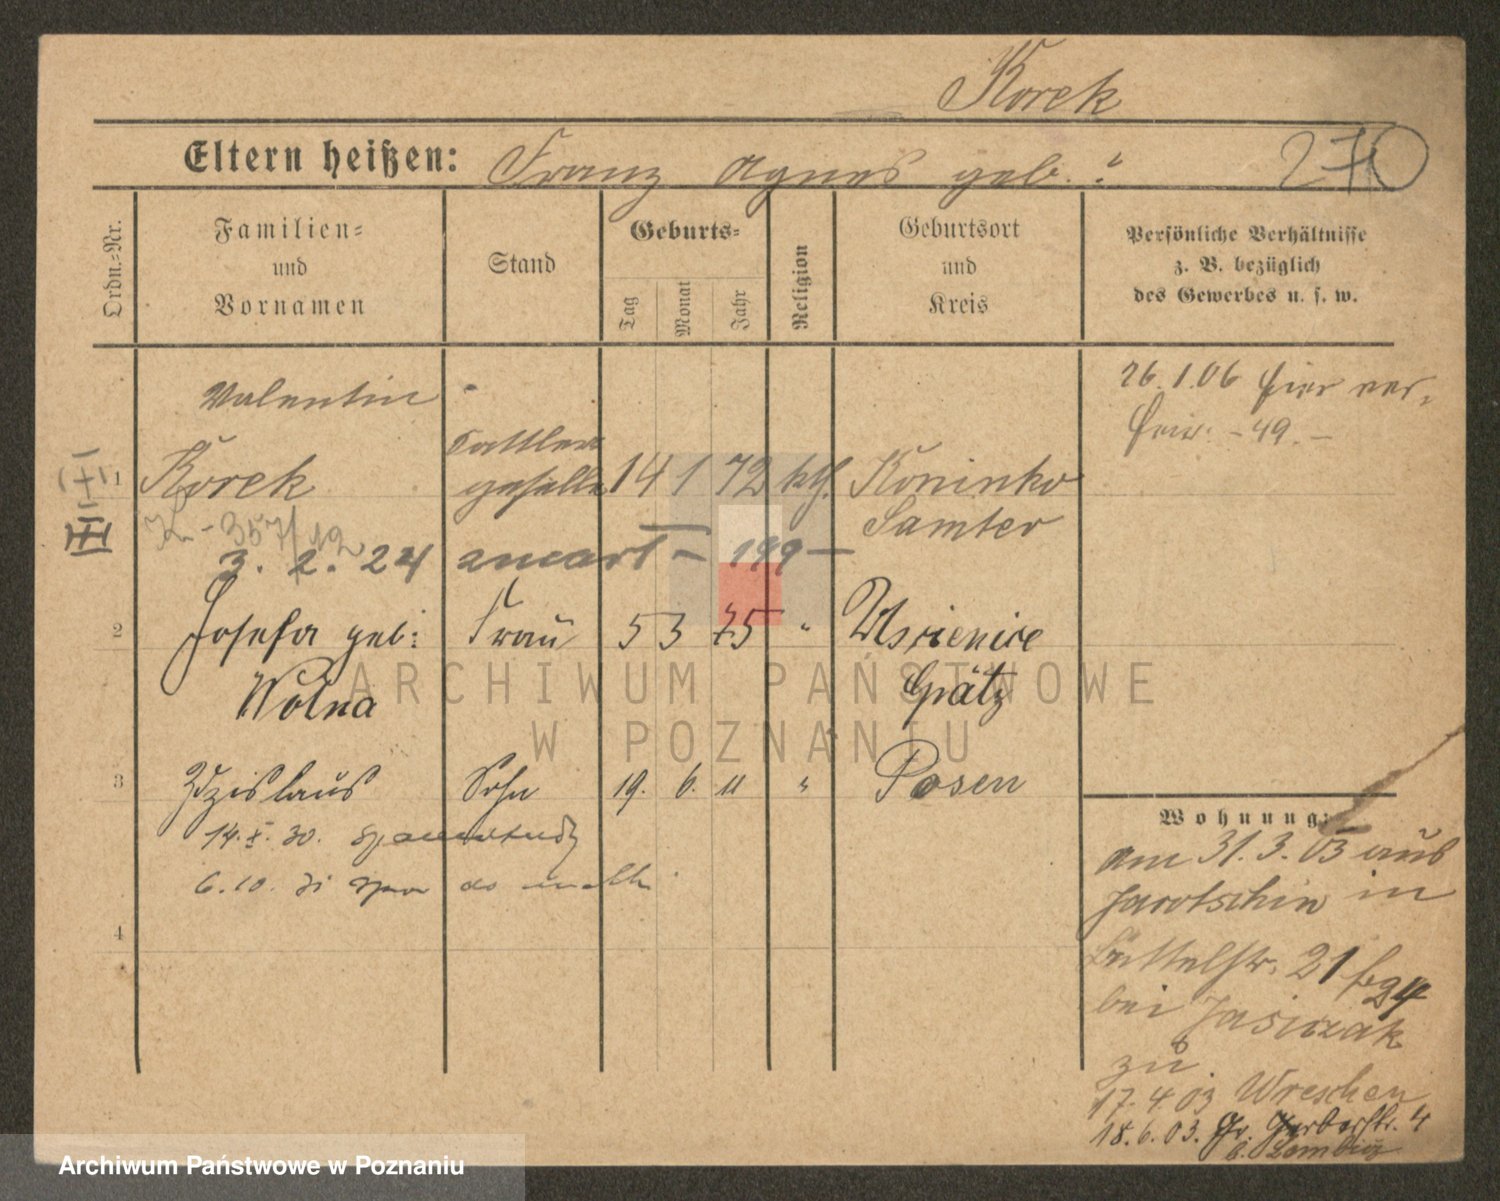 Korek
Eltern heißen: Franz Agnes geb. ?
270
Ordn.-Nr.
Familien- und Vornamen
Stand
Geburts-
Tag
Monat
Jahr
Religion
Geburtsort und Kreis
Persönliche Verhältnisse z. B. bezüglich des Gewerbes u. s. w.
26.1.06 hier ver-
heir. - 49. -
Valentin
1 Korek Sattler geselle 14 1 72 kth. Koninko
Samter
K - 357/12
3. 2. 24 - 199 -
2 Josefa geb: Frau 5 3 75 "
Wolna Grätz
3 Zdzislaus Sohn 19. 6. 11 " Posen
14. X. 30.
6. 10. 31
4
Wohnung:
am 31.3.03 aus
Jarotschin in
21
bei Jasiczak
zu
17.4.03 Wreschen
18.6.03. Gr. Gerberstr. 4
ARCHIWUM PAŃSTWOWE
W POZNANIU
Archiwum Państwowe w Poznaniu